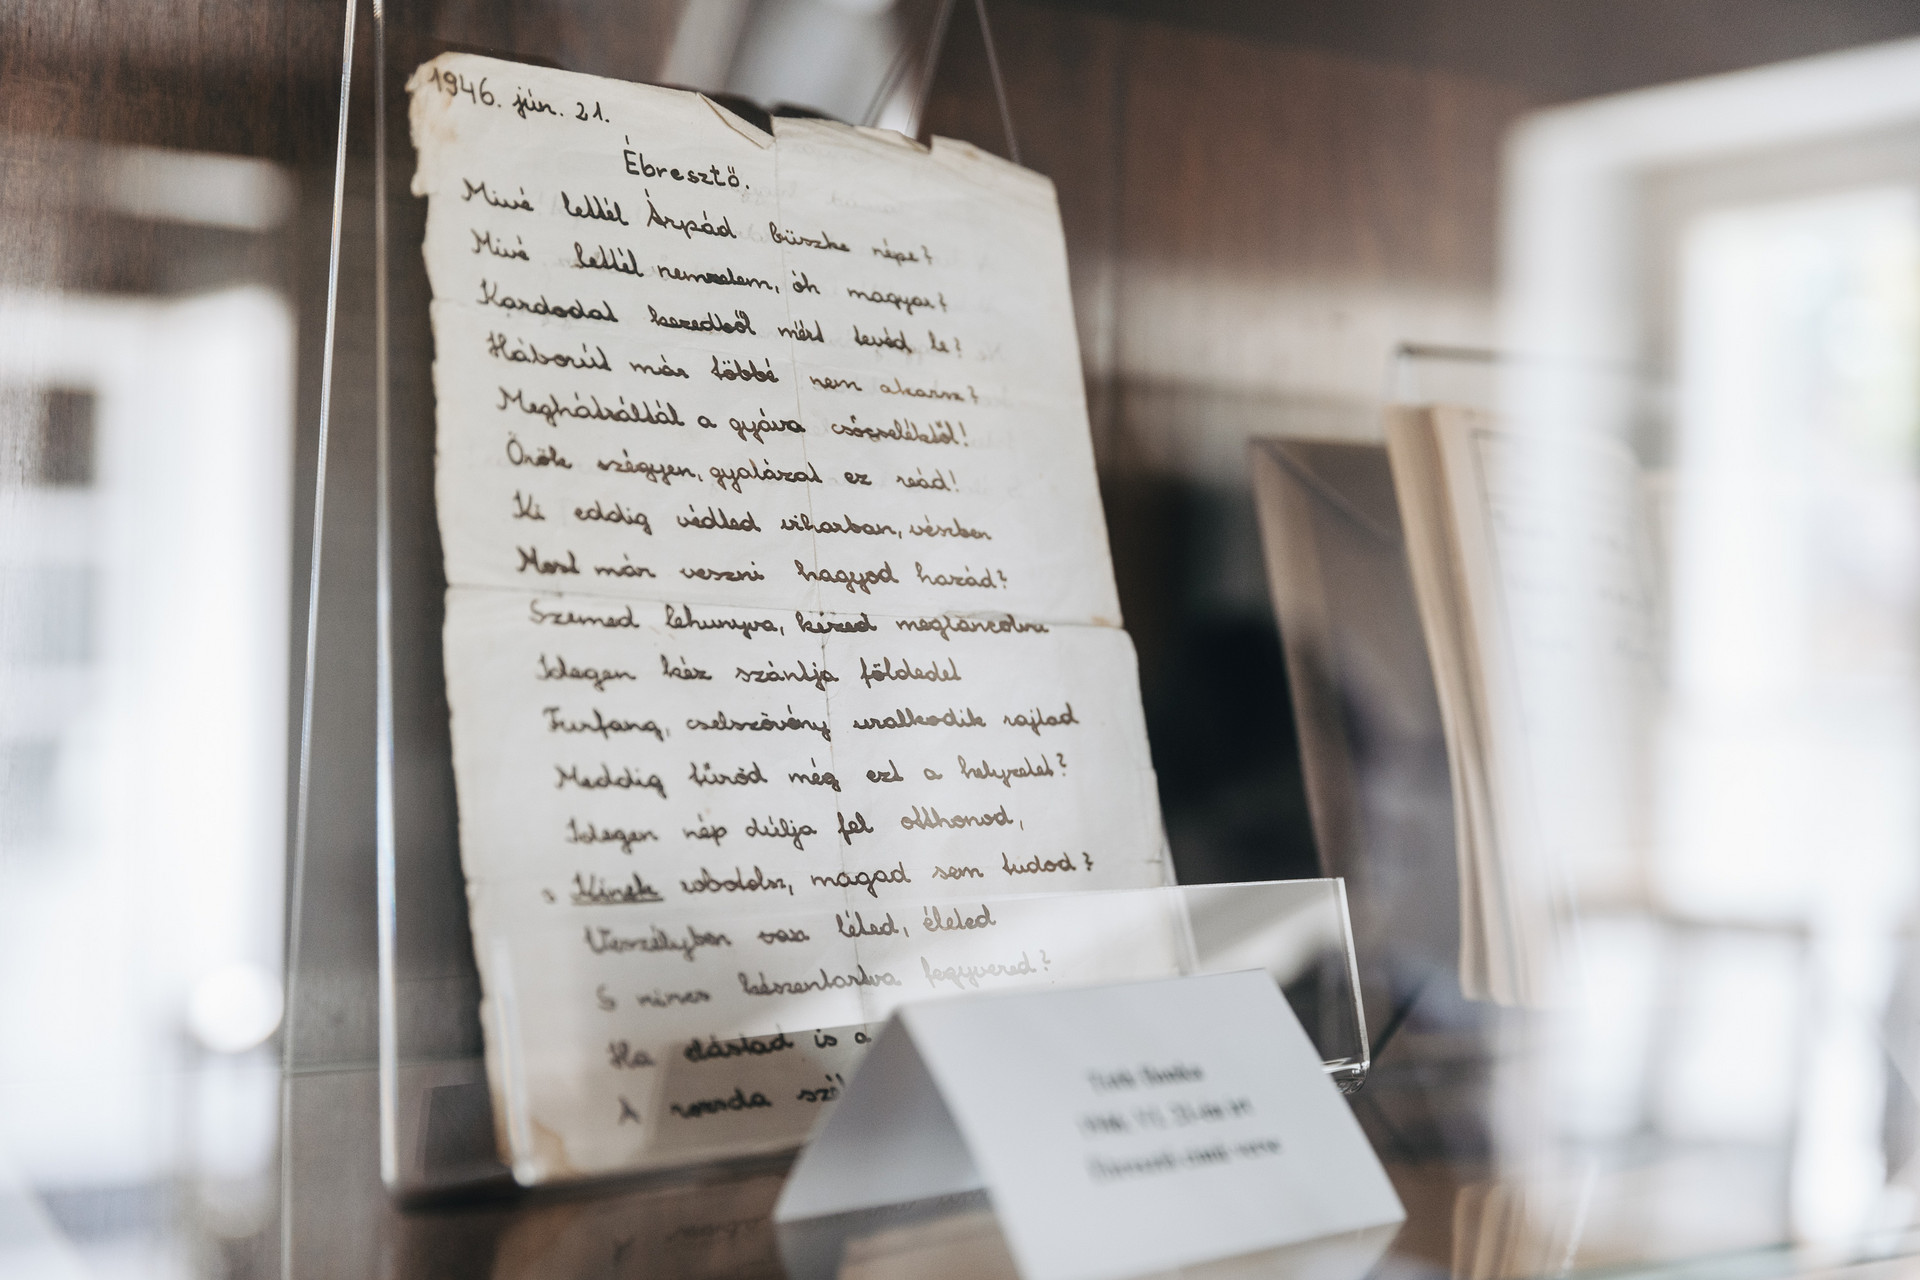 1946. jún. 21.
Ébresztő.
Mivé lettél Árpád büszke népe?
Mivé lettél nemzetem, óh magyar?
Kardodat kezedből mért tevéd le?
Háborút már többé nem akarsz?
Meghátráltál a gyáva csőcseléktől!
Örök szégyen, gyalázat ez reád!
Ki eddig védted viharban, vészben
Most már veszni hagyod hazád?
Szemed lehunyva, kézed megláncolva
Idegen kéz szántja földedet
Furfang, cselszövény uralkodik rajtad
Meddig tűröd még ezt a helyzetet?
Idegen nép dúlja fel otthonod,
s Kinek robotolsz, magad sem tudod?
Veszélyben van léted, életed
S nincs készentartva fegyvered?
Ha elástad is a
A rozsda